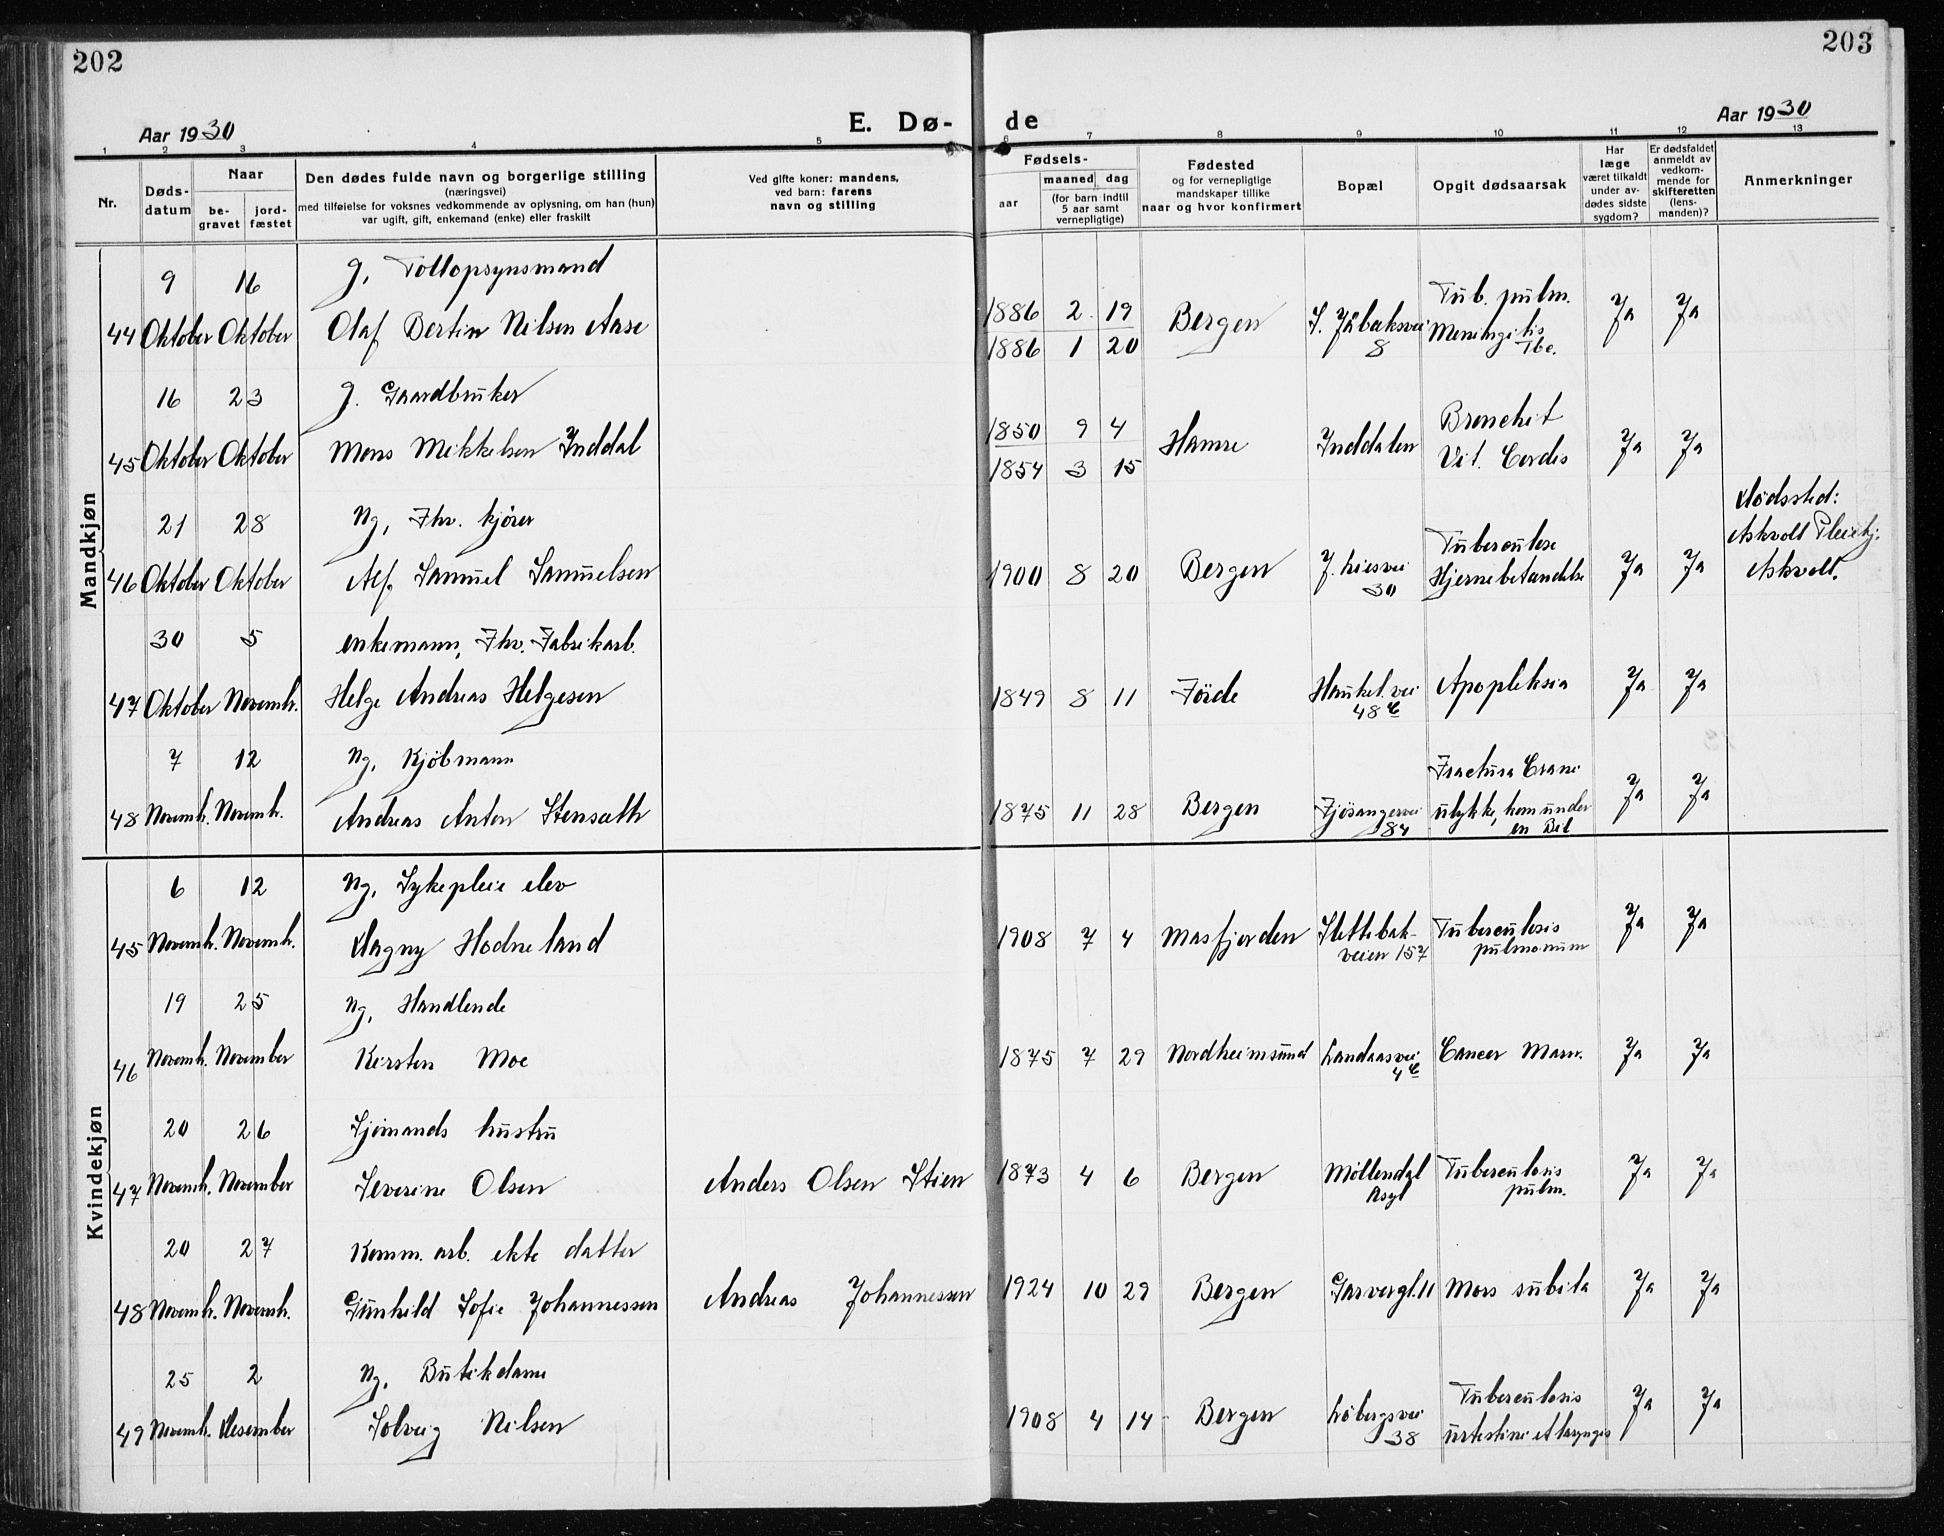 202
203
Aar 1930
E. Dø-
de
Aar 1930
1 2 3 4 5 6 7 8 9 10 11 12 13
Nr.
Døds-
datum
Naar
be-
gravet
jord-
fæstet
Den dødes fulde navn og borgerlige stilling
(næringsvei)
med tilføielse for voksnes vedkommende av oplysning, om han (hun)
var ugift, gift, enkemand (enke) eller fraskilt
Ved gifte koner: mandens,
ved barn: farens
navn og stilling
Fødsels-
aar
maaned dag
(for barn indtil
5 aar samt
vernepligtige)
Fødested
og for vernepligtige
mandskaper tillike
naar og hvor konfirmert
Bopæl
Opgit dødsaarsak
Har
læge
været tilkaldt
under av-
dødes sidste
sygdom?
Er dødsfaldet
anmeldt av
vedkom-
mende for
skifteretten
(lens-
manden)?
Anmerkninger
Mandkjøn
9 16 g, Tollopsynsmand
44 Oktober Oktober Olaf Bertin Nilsen Aase
1886 2 19
1886 1 20
Bergen
8
Tub. pulm.
Meningitis
Tbc.
Ja Ja
16 23 g. Gaardbruker
45 Oktober Oktober Mons Mikkelsen Inddal
1850 9 4
1854 3 15
Hamre
Inddalen
Bronchit
Vit. Cordis
Ja Ja
21 28 Ug, Fhv. kjører
46 Oktober Oktober Alf Samuel Samuelsen
1900 8 20 Bergen
J. Liesvei
30
Tuberculose
Hjernebetændelse
Ja Ja
Dødssted:
Askvoll Pleiehj.
Askvoll.
30 5 enkemann, Fhv. Fabrikarb.
47 Oktober Novemb. Helge Andreas Helgesen
1849 8 11 Förde
Haukel. vei
48 c
Apopleksia Ja Ja
7 12 Ug, Kjøbmann
48 Novemb. Novemb. Andreas Anton Stensæth
1875 11 28 Bergen
Fjøsangervei
84
Fractura Crani
ulykke, kom under
en Bil
Ja Ja
Kvindekjøn
6 12 Ug, Sykepleie elev
45 Novemb. Novemb. Dagny Hodneland
1908 7 4 Masfjorden
Slettebak-
veien 157
Tuberculosis
pulmonum
Ja Ja
19 25 Ug, Handlende
46 Novemb. November Kirsten Moe
1875 7 29 Nordheimsund
Landaasvei
4 c
Cancer Mam.
Ja Ja
20 26 Sjømands hustru
47 Novemb. November Severine Olsen Anders Olsen Stien
1873 4 6 Bergen
Möllendal
Asyl
Tuberculosis
pulm.
Ja Ja
20 27 Komm. arb. ekte datter
48 Novemb. Novemb. Gunhild Sofie Johannessen Andreas Johannessen
1924 10 29 Bergen Garvergt. 11 Mors subita Ja Ja
25 2 Ug, Butikdame
49 Novemb. Desember Solveig Nilsen
1908 4 14 Bergen
Löbergsvei
38
Tuberculosis
intestini et laryngis
Ja Ja